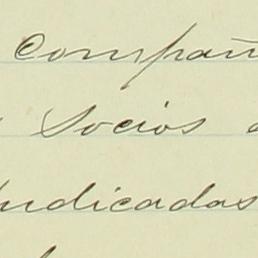 Compañ
Socios
indicadas